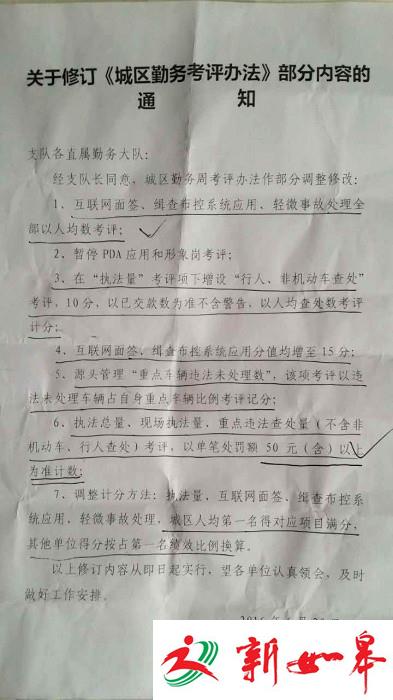 关于修订《城区勤务考评办法》部分内容的
通 知
支队各直属勤务大队：
经支队长同意，城区勤务周考评办法作部分调整修改：
1、互联网面签、缉查布控系统应用、轻微事故处理全
部以人均数考评；
2、暂停 PDA 应用和形象岗考评；
3、在“执法量”考评项下增设“行人、非机动车查处”
考评，10 分，以已交款数为准不含警告，以人均查处数考评
计分；
4、互联网面签、缉查布控系统应用分值均增至 15 分；
5、源头管理“重点车辆违法未处理数”，该项考评以违
法未处理车辆占自身重点车辆比例考评记分；
6、执法总量、现场执法量，重点违法查处量（不含非
机动车、行人查处）考评，以单笔处罚额 50 元（含）以上
为准计数；
7、调整计分方法：执法量，互联网面签、缉查布控系
统应用，轻微事故处理，城区人均第一名得对应项目满分，
其他单位得分按占第一名绩效比例换算。
以上修订内容从即日起实行，望各单位认真领会，及时
做好工作安排。
新如皋